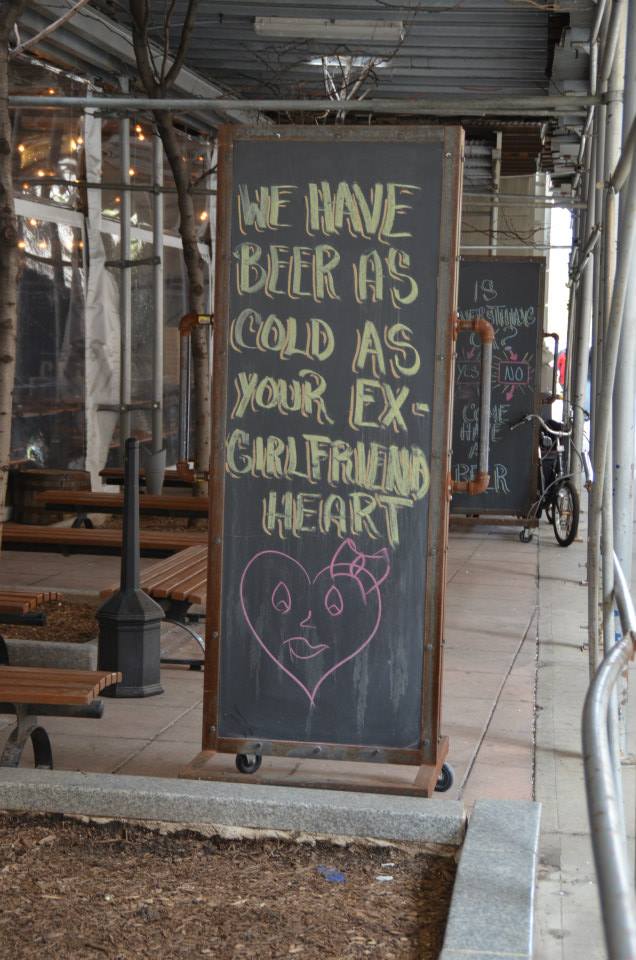 WE HAVE
BEER AS
COLD AS
YOUR EX-
GIRLFRIEND
HEART
IS
EVERYTHING
OK?
YES
NO
COME
HAVE
A
BEER